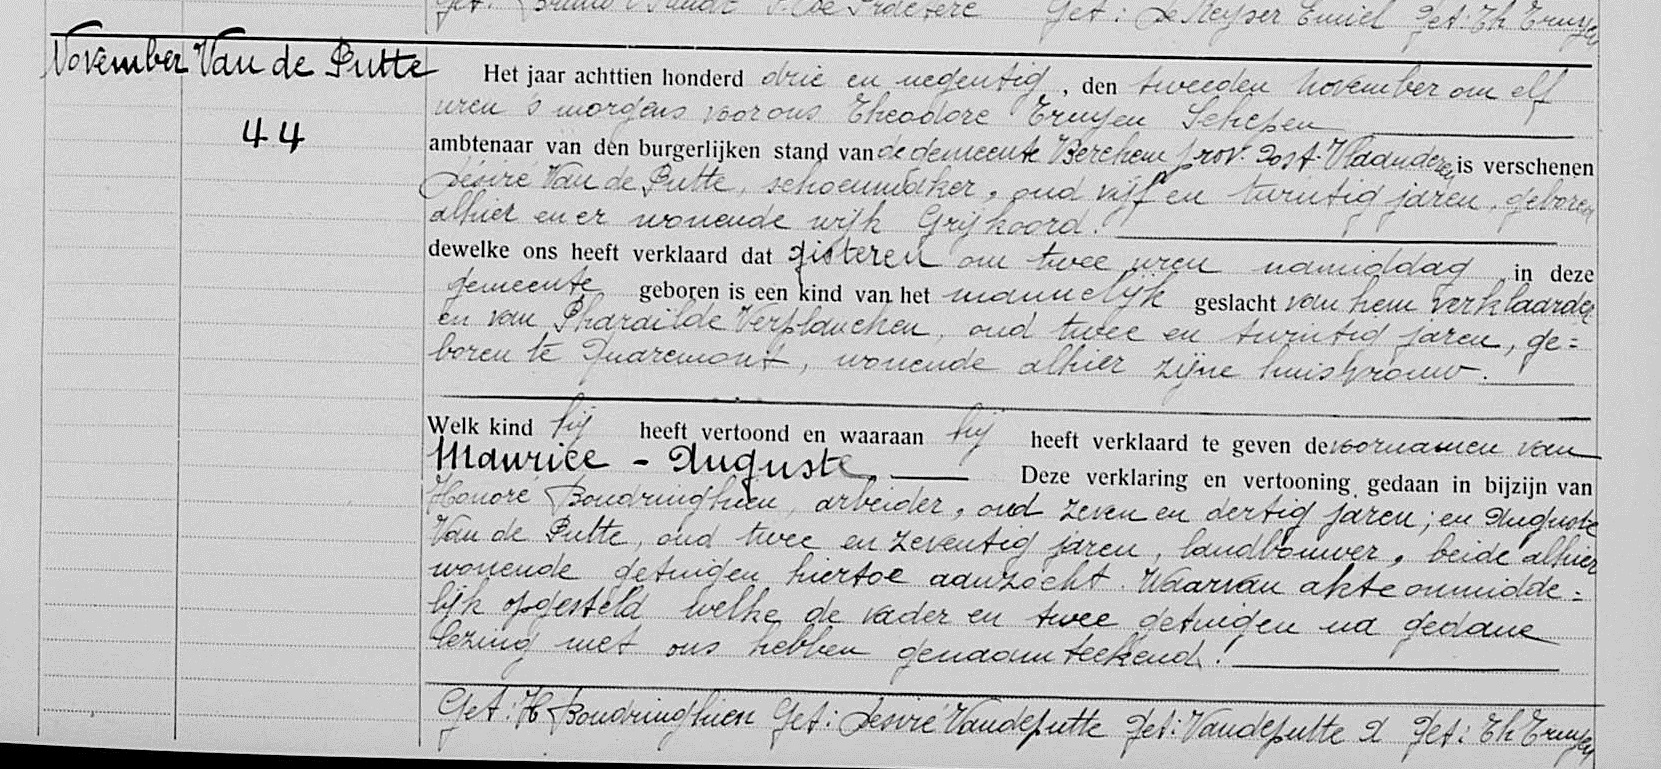 get: Bruno get: De Keyser Emiel get: Th Truyen
November Van de Putte
44
Het jaar achttien honderd drie en negentig, den tweeden november om elf
uren 's morgens voor ons Theodore Truyen Schepen
ambtenaar van den burgerlijken stand van de gemeente Berchem prov. Oost-Vlaanderen is verschenen
Désiré Van de Putte, schoenmaker, oud vijf en twintig jaren, geboren
alhier en er wonende wijk Grijkoord.
dewelke ons heeft verklaard dat gisteren om twee uren namiddag in deze
gemeente geboren is een kind van het mannelijk geslacht van hem verklaarder
en van Pharaïlde Verplancken, oud twee en twintig jaren, ge=
boren te Quaremont, wonende alhier zijne huisvrouw.
Welk kind hij heeft vertoond en waaraan hij heeft verklaard te geven de voornamen van
Maurice - Auguste Deze verklaring en vertooning gedaan in bijzijn van
Honoré Boudringhien, arbeider, oud zeven en dertig jaren; en Auguste
Van de Putte, oud twee en zeventig jaren, landbouwer, beide alhier
wonende getuigen hiertoe aanzocht. Waarvan akte onmidde=
lijk opgesteld welke de vader en twee getuigen na gedane
lezing met ons hebben genaamteekend.
Get: H Boudringhien Get: Desiré Vandeputte Get: Vandeputte A Get: Th Truyen